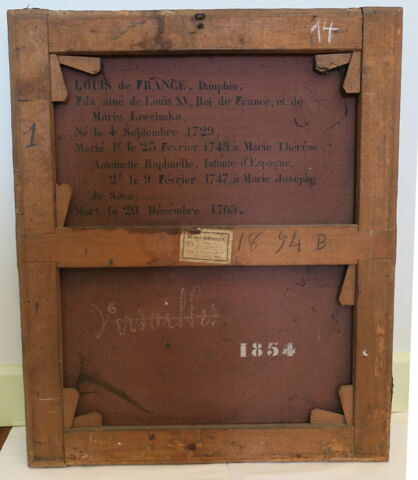 14
LOUIS de FRANCE, Dauphin,
Fils ainé de Louis XV, Roi de France, et de
Marie Leczinska,
Né le 4 Septembre 1729,
Marié 1º le 25 Février 1745 à Marie Thérèse
Antoinette Raphaelle, Infante d'Espagne,
2º le 9 Février 1747 à Marie Josephe
de Saxe,
Mort le 20 Décembre 1765.
1
1854 B
Versailles
1854